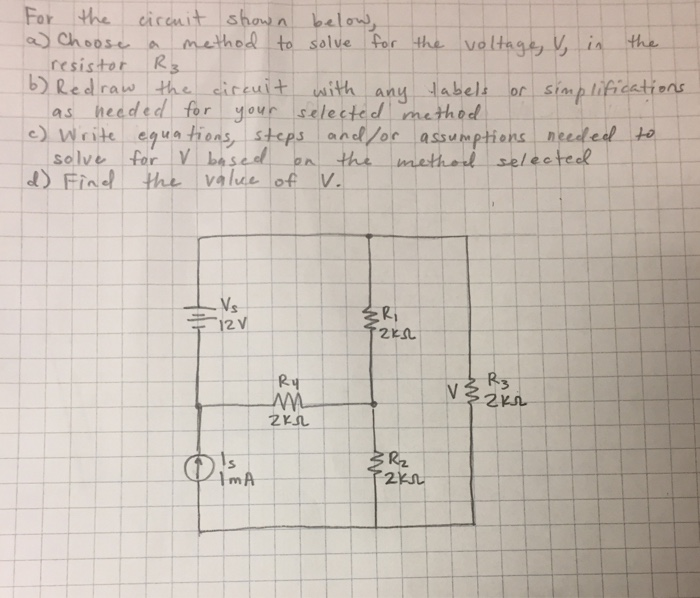 For the circuit shown below,
a) Choose a method to solve for the voltage, V, in the
resistor R3
b) Redraw the circuit with any labels or simplifications
as needed for your selected method
c) Write equations, steps and/or assumptions needed to
solve for V based on the method selected
d) Find the value of V.
Vs
12V
R1
2KΩ
R4
2KΩ
V R3
2KΩ
Is
1mA
R2
2KΩ